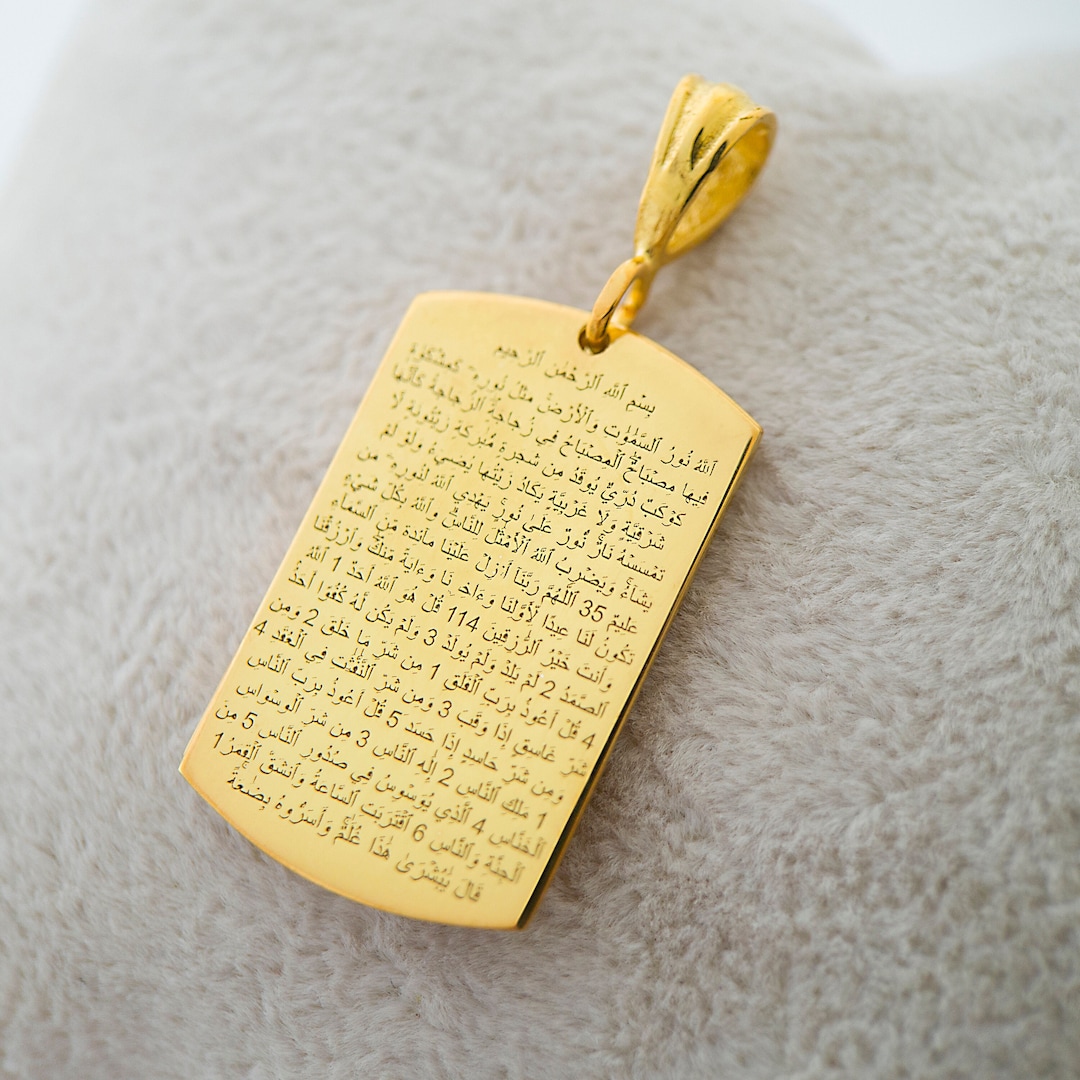 بِسْمِ ٱللَّهِ ٱلرَّحْمَٰنِ ٱلرَّحِيمِ
ٱللَّهُ نُورُ ٱلسَّمَٰوَٰتِ وَٱلْأَرْضِۚ مَثَلُ نُورِهِۦ كَمِشْكَوٰةٍ
فِيهَا مِصْبَاحٌۖ ٱلْمِصْبَاحُ فِي زُجَاجَةٍۖ ٱلزُّجَاجَةُ كَأَنَّهَا
كَوْكَبٌ دُرِّيٌّ يُوقَدُ مِن شَجَرَةٍ مُّبَٰرَكَةٍ زَيْتُونَةٍ لَّا
شَرْقِيَّةٍ وَلَا غَرْبِيَّةٍ يَكَادُ زَيْتُهَا يُضِيٓءُ وَلَوْ لَمْ
تَمْسَسْهُ نَارٌۚ نُّورٌ عَلَىٰ نُورٍۗ يَهْدِي ٱللَّهُ لِنُورِهِۦ مَن
يَشَآءُۚ وَيَضْرِبُ ٱللَّهُ ٱلْأَمْثَٰلَ لِلنَّاسِۗ وَٱللَّهُ بِكُلِّ شَيْءٍ
عَلِيمٌ 35 ٱللَّهُمَّ رَبَّنَآ أَنزِلْ عَلَيْنَا مَآئِدَةً مِّنَ ٱلسَّمَآءِ
تَكُونُ لَنَا عِيدًا لِّأَوَّلِنَا وَءَاخِرِنَا وَءَايَةً مِّنكَۖ وَٱرْزُقْنَا
وَأَنتَ خَيْرُ ٱلرَّٰزِقِينَ 114 قُلْ هُوَ ٱللَّهُ أَحَدٌ 1 ٱللَّهُ
ٱلصَّمَدُ 2 لَمْ يَلِدْ وَلَمْ يُولَدْ 3 وَلَمْ يَكُن لَّهُ كُفُوًا أَحَدٌ
4 قُلْ أَعُوذُ بِرَبِّ ٱلْفَلَقِ 1 مِن شَرِّ مَا خَلَقَ 2 وَمِن
شَرِّ غَاسِقٍ إِذَا وَقَبَ 3 وَمِن شَرِّ ٱلنَّفَّٰثَٰتِ فِي ٱلْعُقَدِ 4
وَمِن شَرِّ حَاسِدٍ إِذَا حَسَدَ 5 قُلْ أَعُوذُ بِرَبِّ ٱلنَّاسِ
1 مَلِكِ ٱلنَّاسِ 2 إِلَٰهِ ٱلنَّاسِ 3 مِن شَرِّ ٱلْوَسْوَاسِ
ٱلْخَنَّاسِ 4 ٱلَّذِي يُوَسْوِسُ فِي صُدُورِ ٱلنَّاسِ 5 مِنَ
ٱلْجِنَّةِ وَٱلنَّاسِ 6 ٱقْتَرَبَتِ ٱلسَّاعَةُ وَٱنشَقَّ ٱلْقَمَرُ 1
قَالَ يَٰبُشْرَىٰ هَٰذَا غُلَٰمٌۚ وَأَسَرُّوهُ بِضَٰعَةًۚ